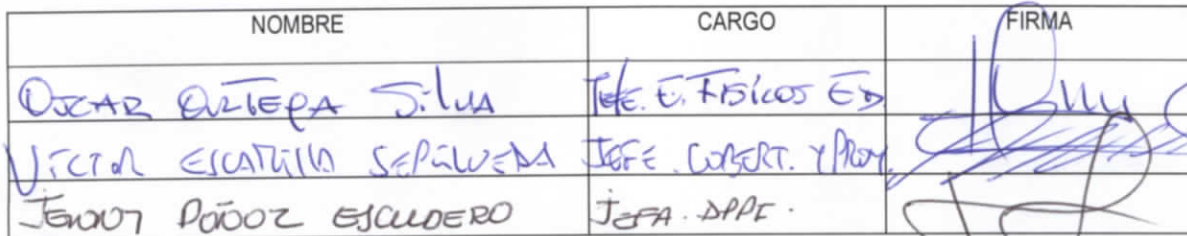 NOMBRE CARGO FIRMA
OSCAR ORTEGA SilVA JEFE. E. FISICOS ED
VICTOR ESCATILLA SEPÚLVEDA JEFE. COBERT. Y PROY.
JENNY ESCUDERO JEFA. DPPI.